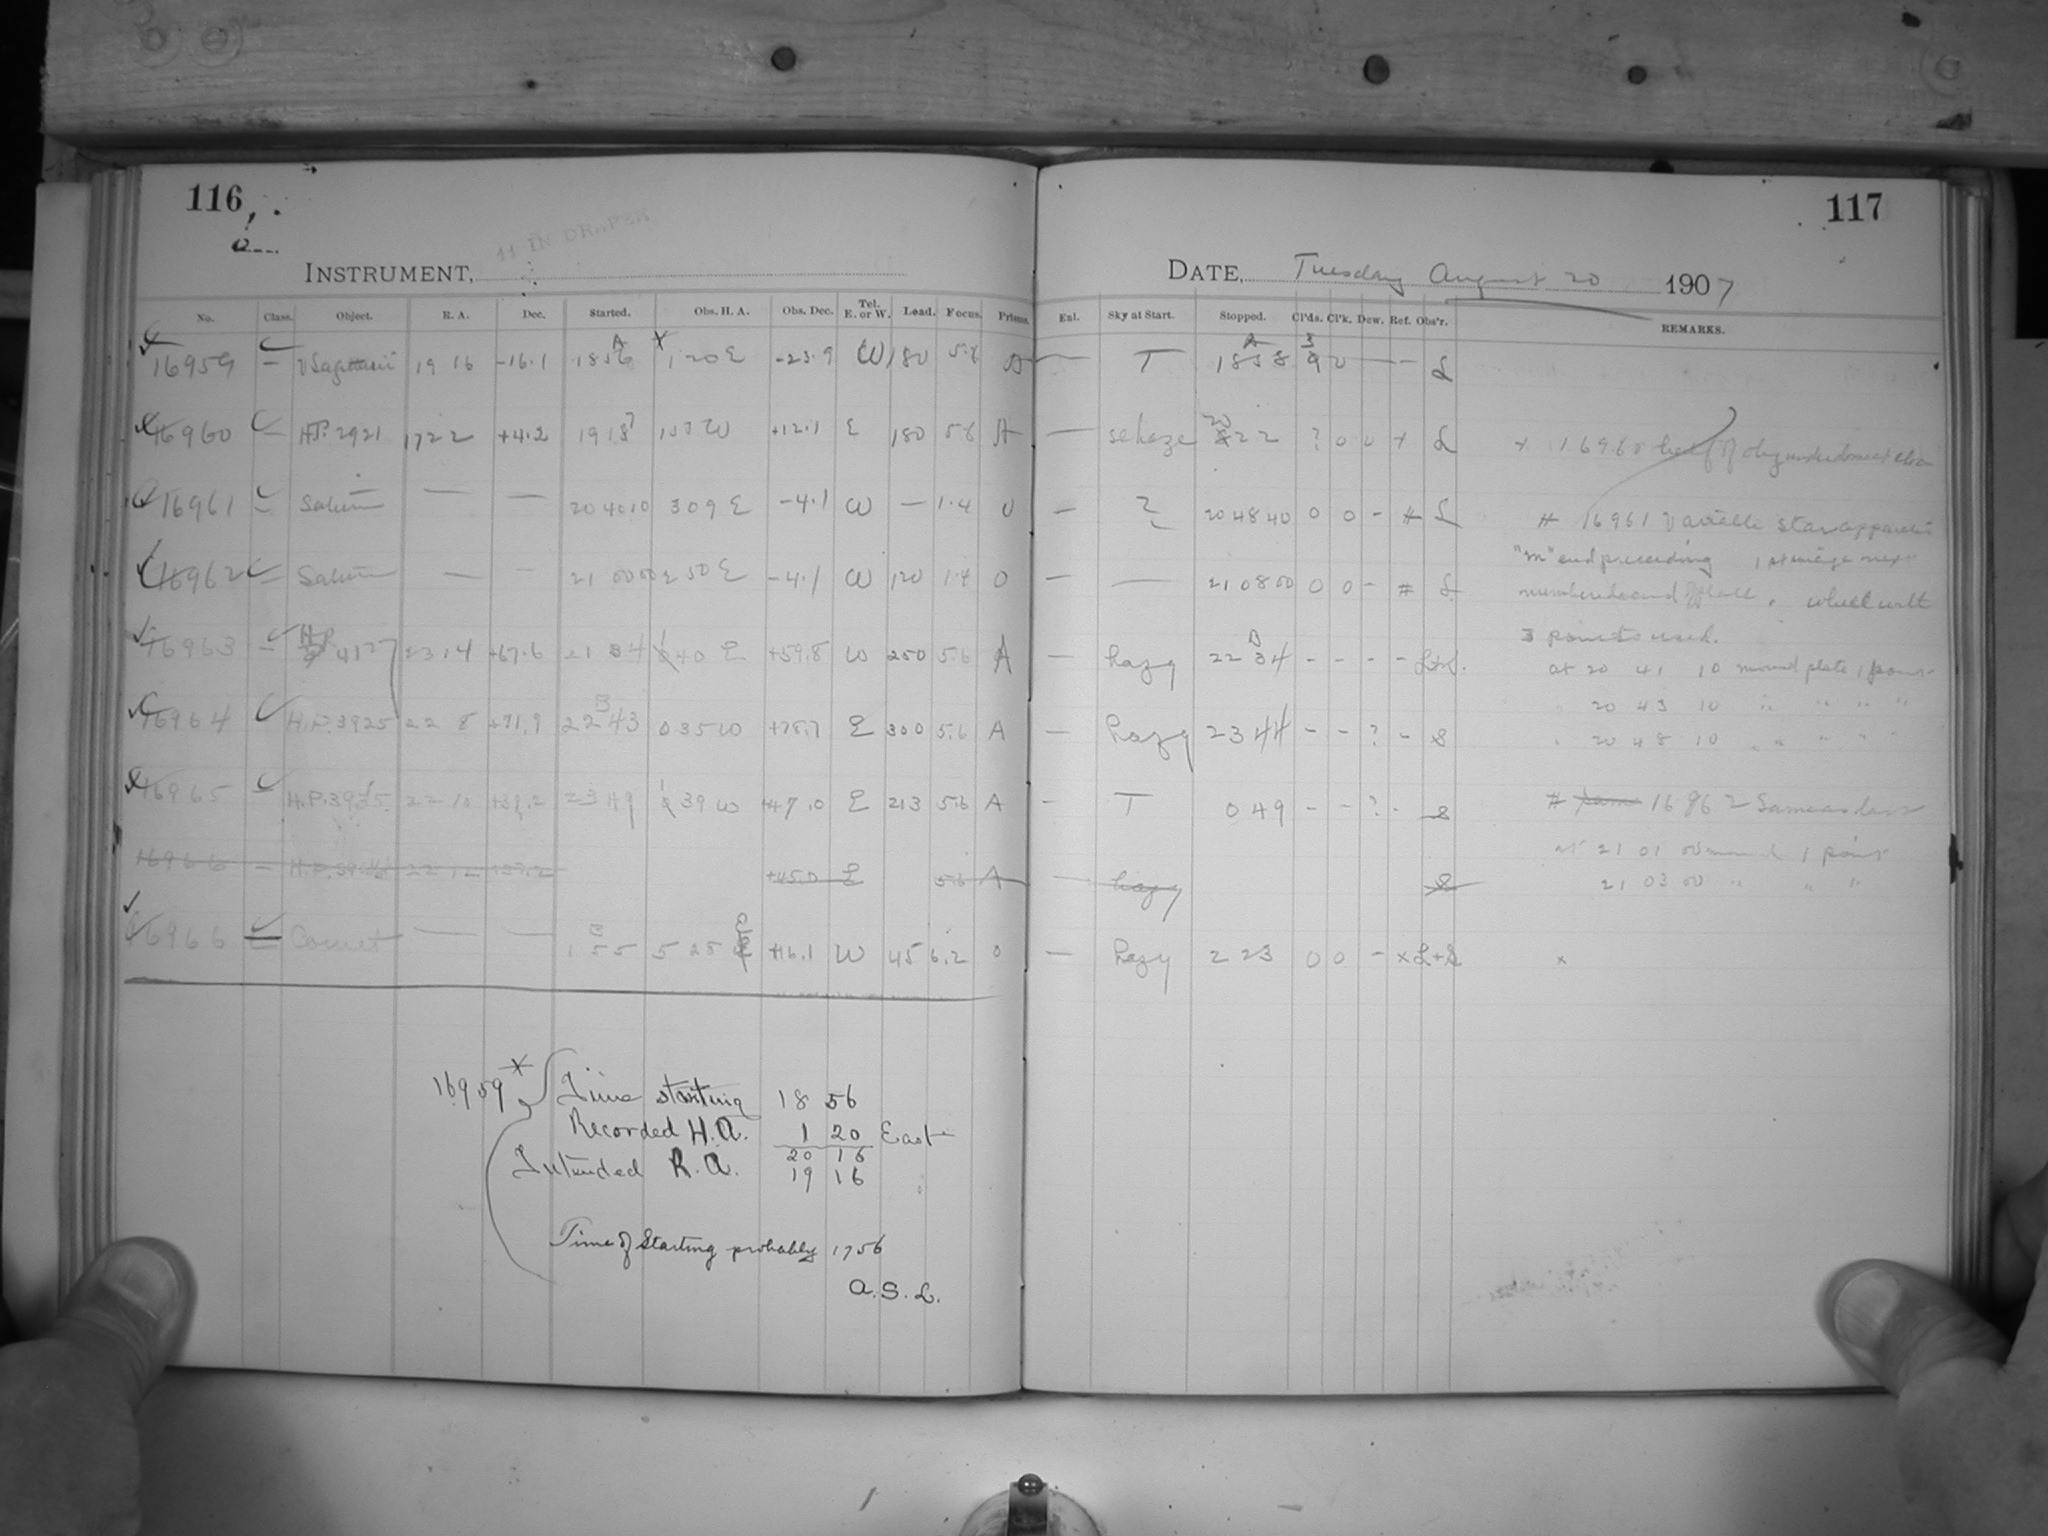 116
117
11 IN DRAPER
INSTRUMENT,
DATE, Tuesday August 20 1907
No. Class. Object. R. A. Dec. Started. Obs. H. A. Obs. Dec. Tel. E. or W. Lead. Focus. Prisms. Enl. Sky at Start. Stopped. Cl'ds. Cl'k. Dew. Ref. Obs'r. REMARKS.
16959 — Sagittarii 19 16 -16.1 1856 1 20 E -23.9 W 180 5.6 — T 1858
16960 — H.P. 2921 17 22 +4.2 +12.1 E 180 5.6 A — 22 ? 0 0 x L
x 16960
16961 — Saturn — — 20 40 10 3 09 E -4.1 W — 1.4 0 — 20 48 40 0 0 - # L
# 16961 Variable star
"M" end preceding
16962 — Saturn — — 21 00 00 2 50 E -4.1 W 120 1.4 0 — — 21 08 00 0 0 - # L
3 points used.
16963 — H.P. 4127 23 14 +67.6 21 34 40 E +59.8 W 250 5.6 A — hazy 22 34 - - - -
at 20 41 10 moved plate 1 point
16964 H.P. 3925 22 8 +71.9 22 43 0 35 W +78.7 E 300 5.6 A — hazy 23 44 - - ? - S
" 20 43 10 " " " "
" 20 48 10 " " " "
16965 — 22 10 +39.2 23 49 39 W +47.0 E 213 5.6 A — T 0 49 - - ? - S
# 16962 Same as last
at 21 01 00 moved 1 point
16966 — 22 12 +45.0 E 5.6 A — hazy S
21 03 00 " " "
16966 — Comet — — 1 55 5 28 E +16.1 W 45 6.2 0 — hazy 2 23 0 0 - x L+S x
16959 * Time starting 18 56
Recorded H.A. 1 20 East
20 16
Intended R.A. 19 16
Time of Starting probably 1756
A.S.L.